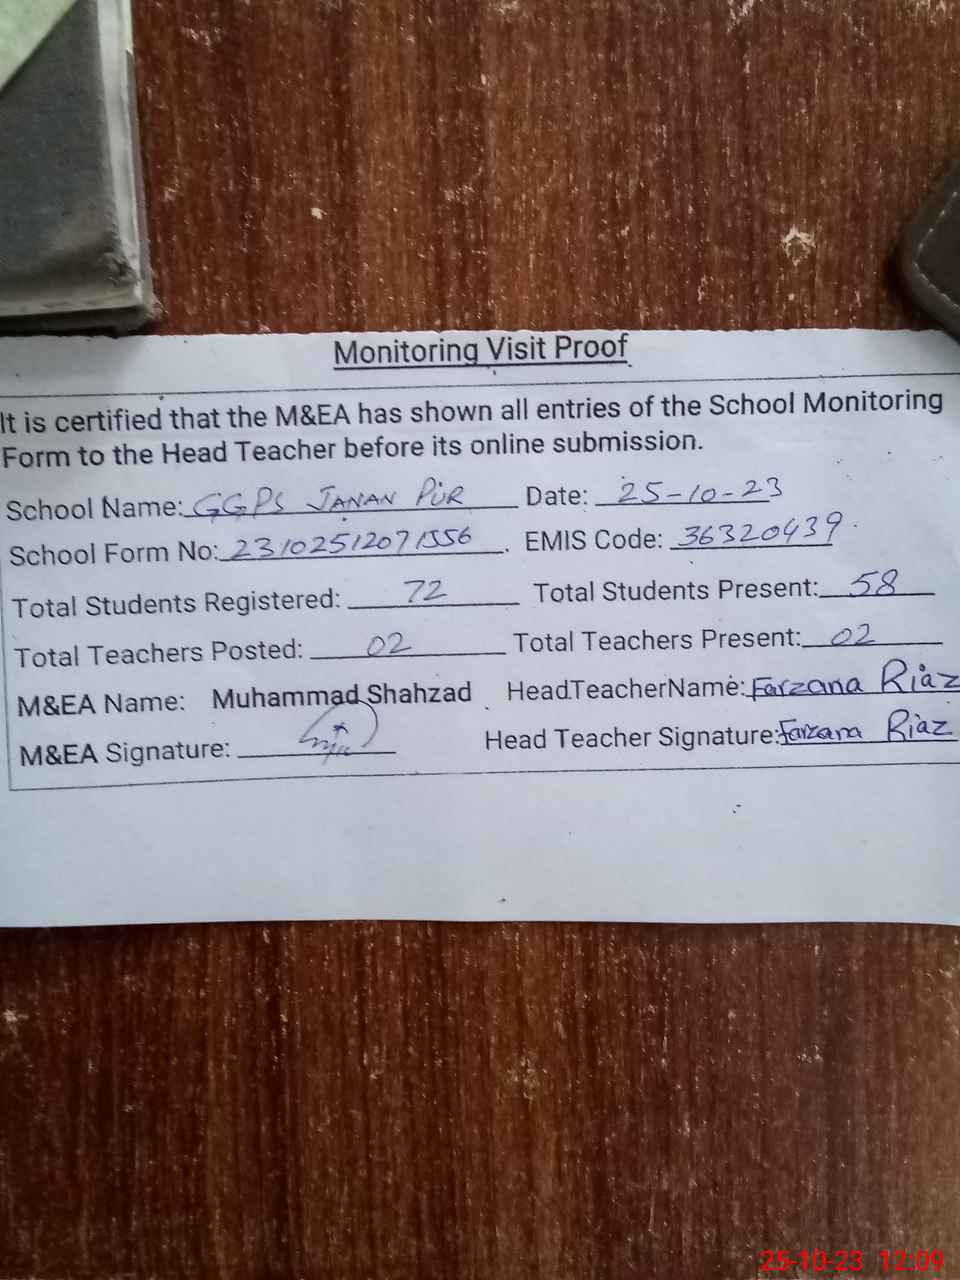 Monitoring Visit Proof
It is certified that the M&EA has shown all entries of the School Monitoring
Form to the Head Teacher before its online submission.
School Name: GGPS JANAN PUR Date: 25-10-23
School Form No: 23102512071556 EMIS Code: 36320439
Total Students Registered: 72 Total Students Present: 58
Total Teachers Posted: 02 Total Teachers Present: 02
M&EA Name: Muhammad Shahzad Head Teacher Name: Farzana Riaz
M&EA Signature: Head Teacher Signature: Farzana Riaz
25-10-23 12:09